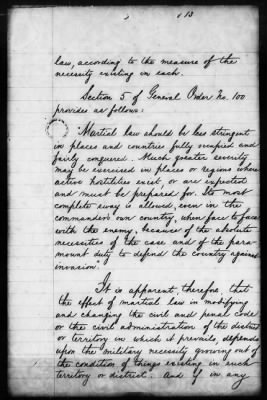 13
law, according to the measure of the
necessity existing in each.
Section 5 of General Order No. 100
provides as follows:
Martial law should be less stringent
in places and countries fully occupied and
fairly conquered. Much greater severity
may be exercised in places or regions where
active hostilities exist, or are expected
and must be prepared for. Its most
complete sway is allowed, even in the
commander's own country, when face to face
with the enemy, because of the absolute
necessities of the case and of the para-
mount duty to defend the country against
invasion.
It is apparent, therefore, that
the effect of martial law in modifying
and changing the civil and penal code
or the civil administration of the district
or territory in which it prevails, depends
upon the military necessity growing out of
the condition of things existing in such
territory or district. And if in any